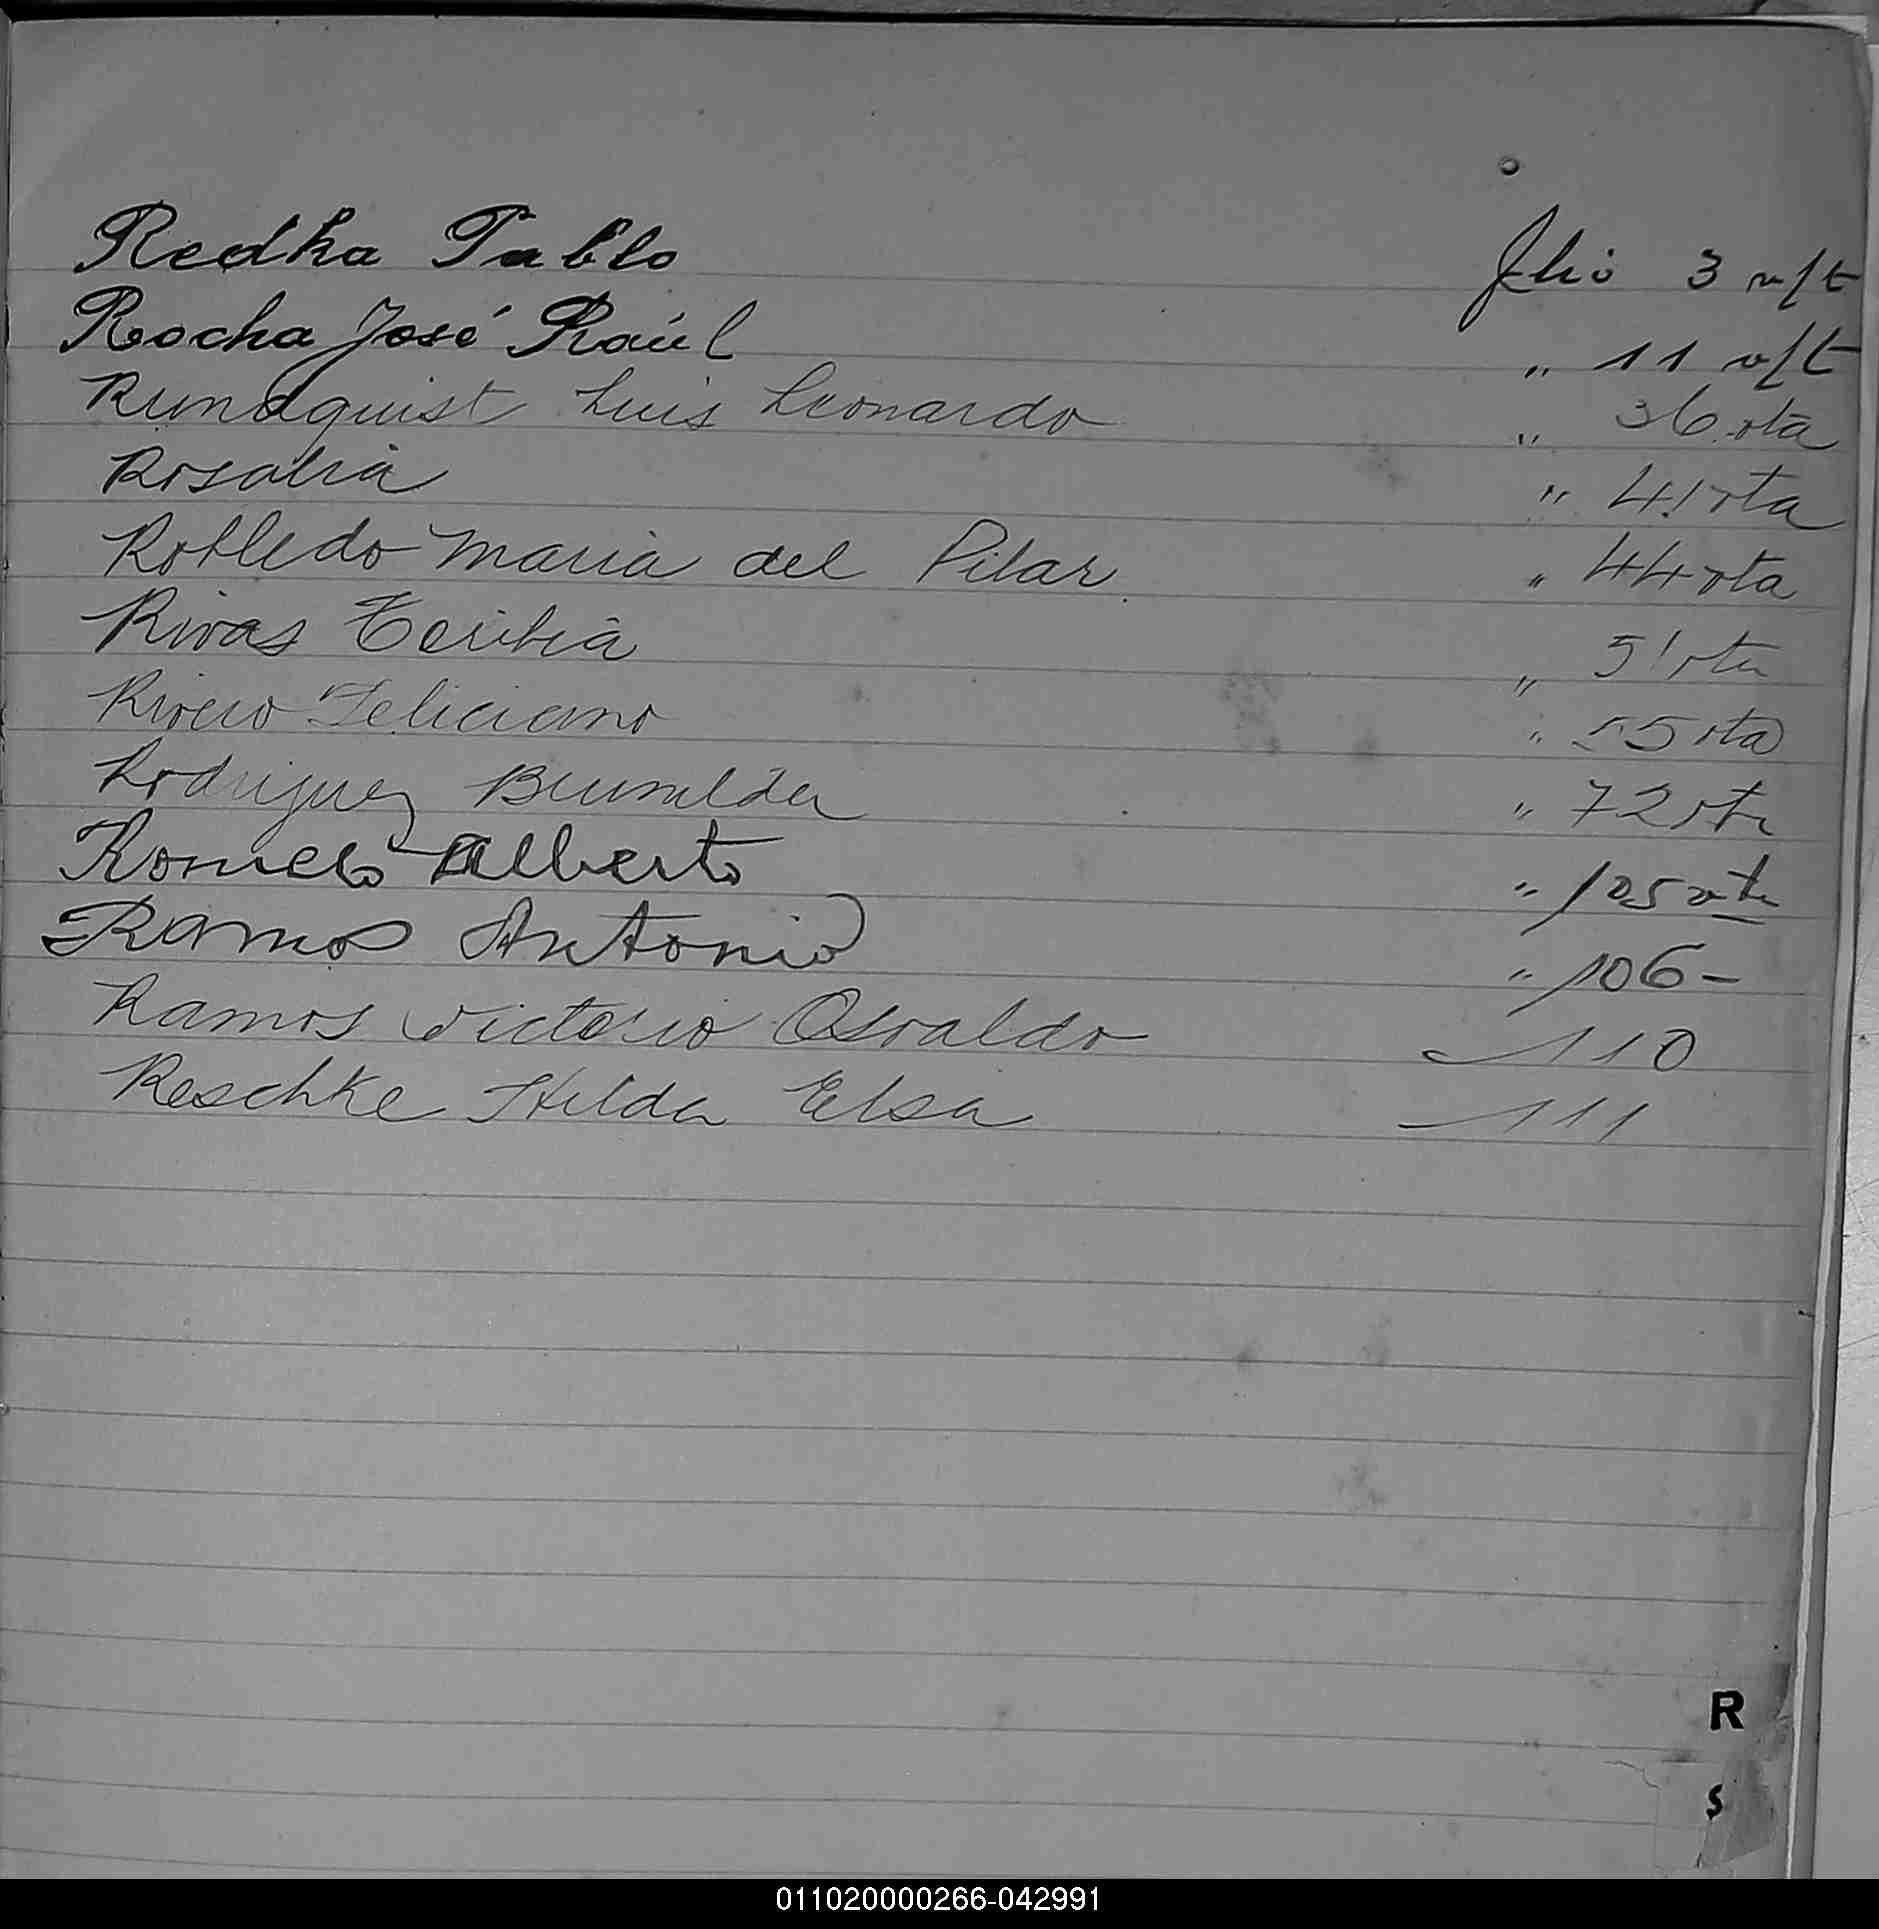 Redka Pablo Flio 3 v/t
Rocha José Raúl " 11 v/t
Rundquist Luis Leonardo " 36 vta
Rosalia " 41 vta
Robledo Maria del Pilar. " 44 vta
Rivas Toribia " 51 vta
Rivero Feliciano " 55 vta
Rodriguez Brunilda " 72 vta
Romero Alberto " 105 vta
Ramos Antonio " 106 -
Ramos Victorio Osvaldo 110
Reschke Hilda Elsa 111
R
S
011020000266-042991